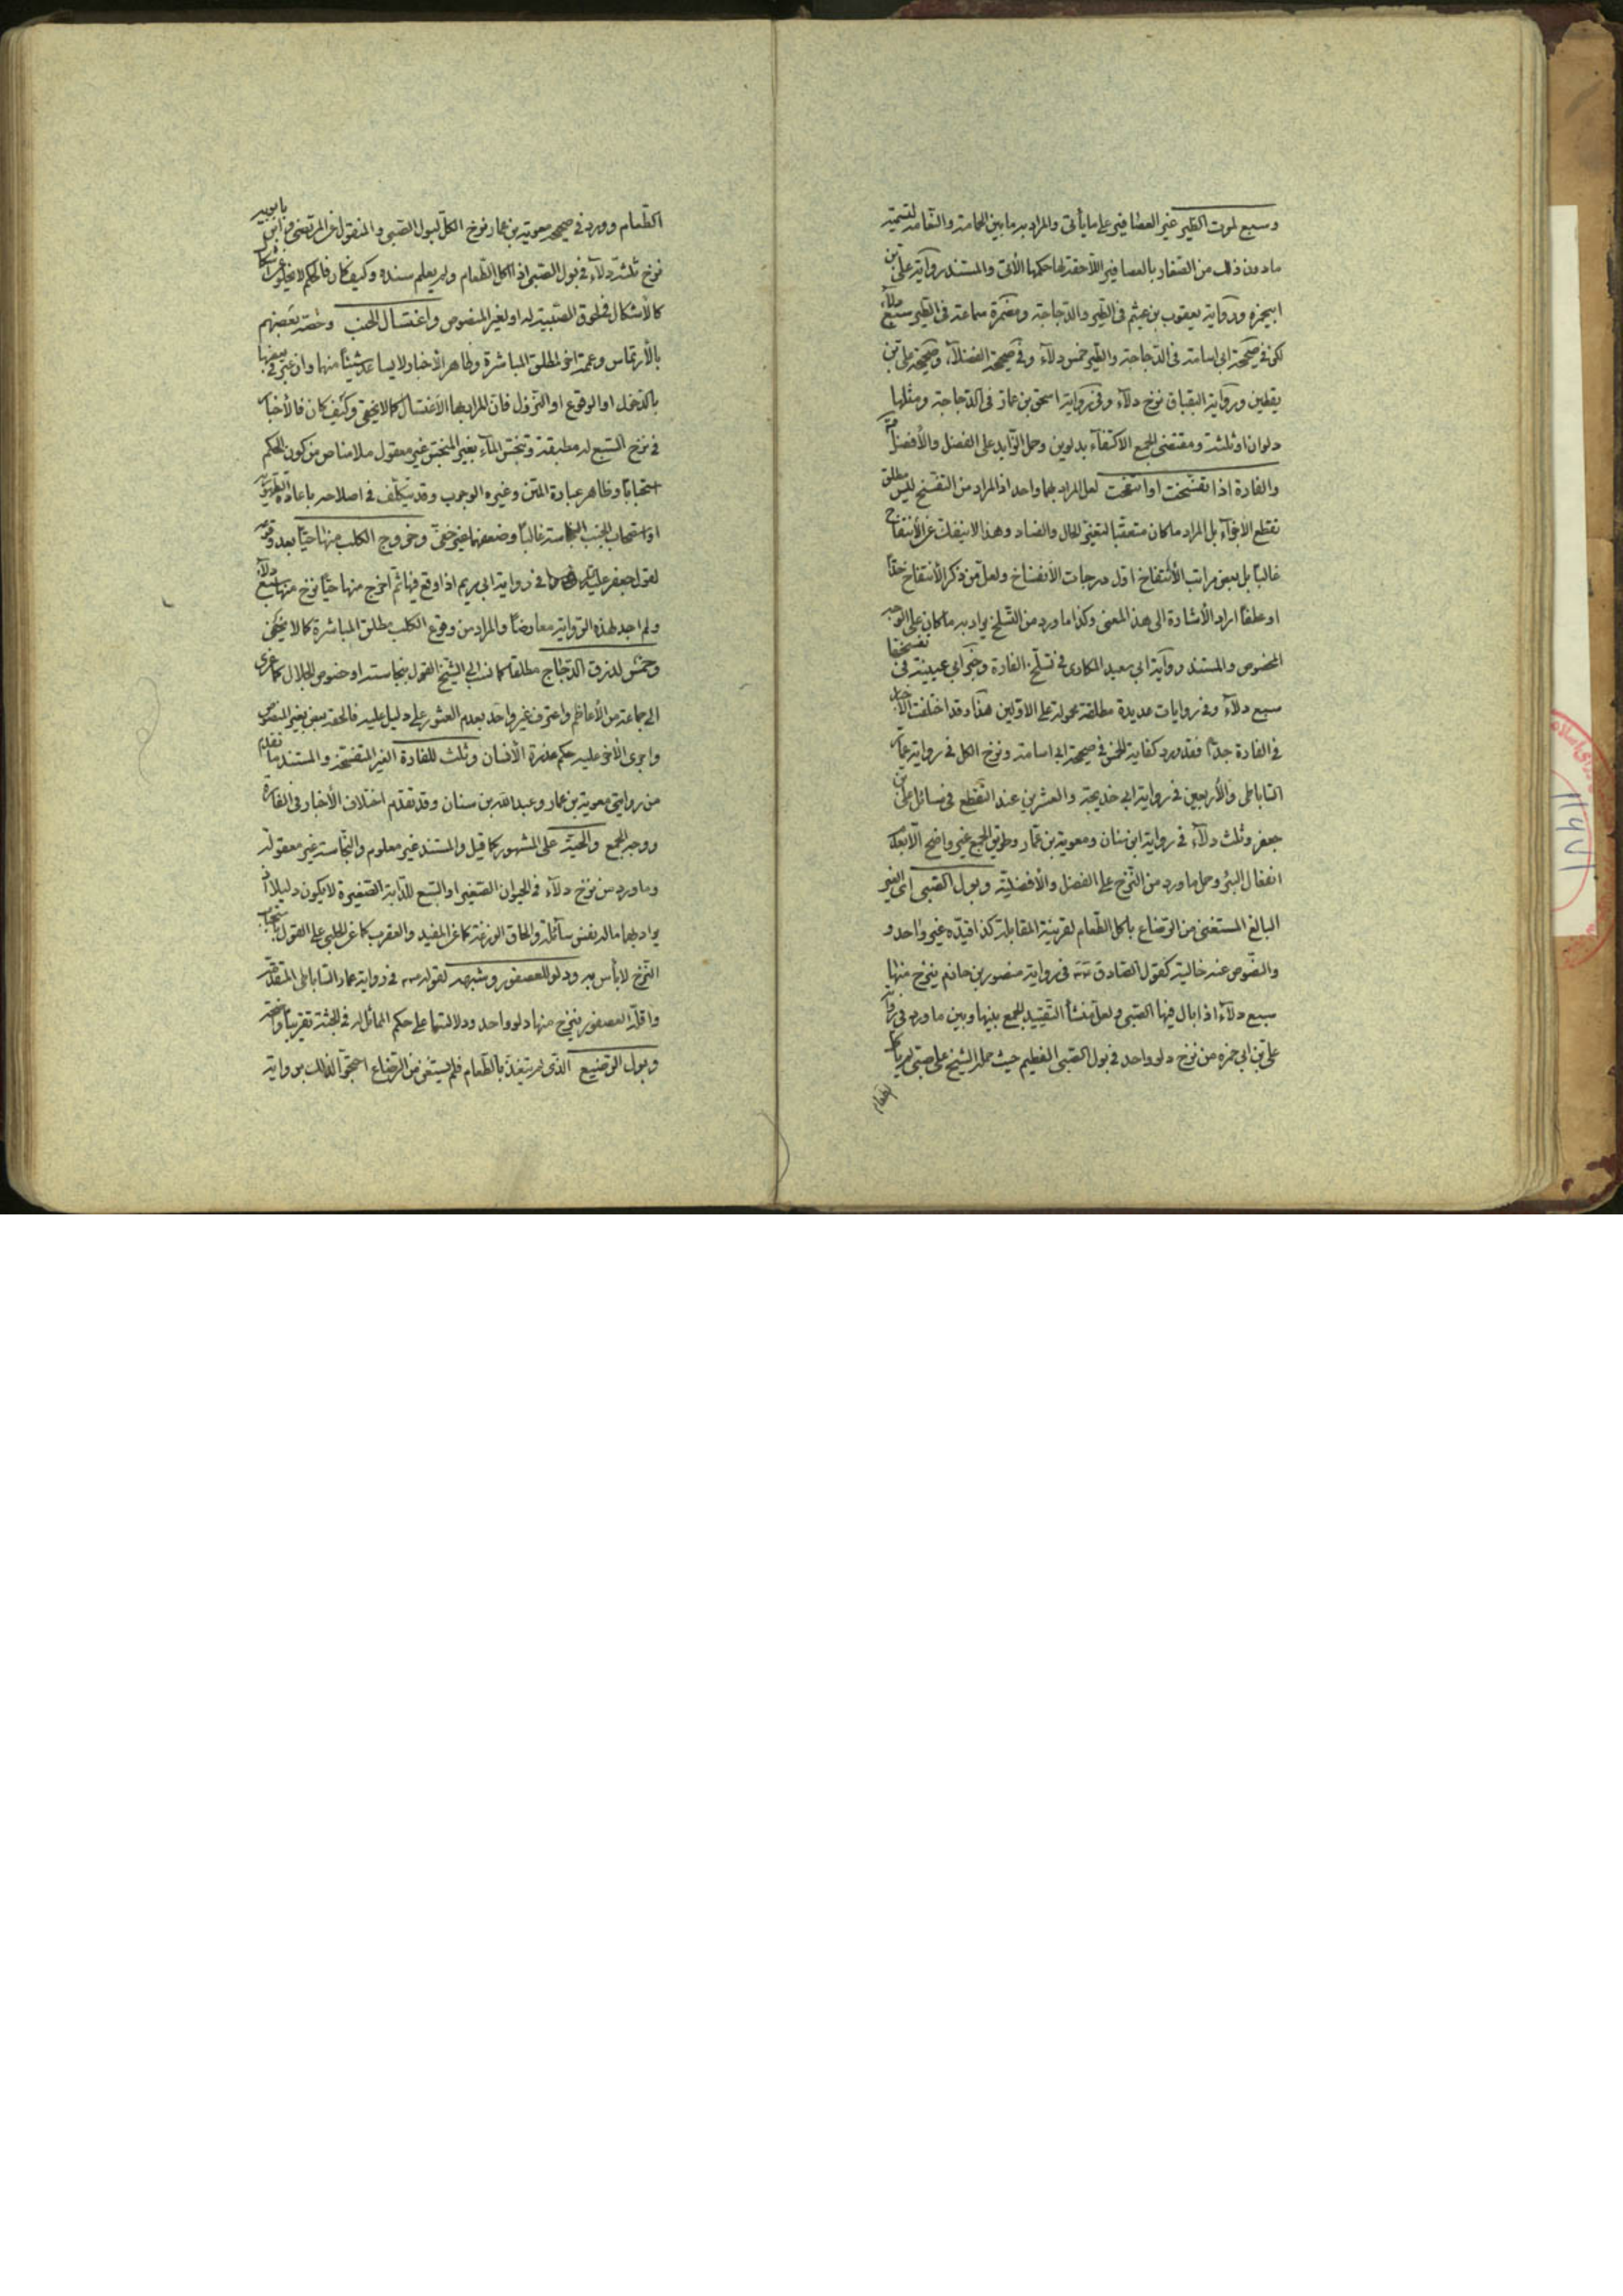 وسبع لموت الطير غير العصافير على ما يأتى والمراد به ما بين الحمامة والنعامة لتسمية
ما دون ذلك من الصغار بالعصافير اللاحقة لها حكمها الأتى والمستند رواية على بن
ابيحمزه ورواية يعقوب بن عيثم فى الطير والدجاجة ومضمرة سماعة فى الطير سبع دلاء
لكن فى صحيحة ابى اسامة فى الدجاجة والطير خمس دلاء وفى صحيحة الفضلاء وصحيحة على بن
يقطين ورواية البقباق نزح دلاء وفى رواية اسحق بن عمار فى الدجاجة ومثلها
دلوان او ثلثة ومقتضى الجمع الاكتفاء بدلوين وحمل الزايد على الفضل والأفضلية
والفارة اذا تفسخت او انتفخت لعل المراد بهما واحد اذ المراد من التفسخ ليس مطلق
تقطع الأجزاء بل المراد ما كان متعقبا لتغير الحال والفساد وهذا لا ينفك عن الأنتفاخ
غالبا بل بعض مراتب الأنتفاخ اول درجات الأنفساخ ولعل من ذكر الأنتفاخ
او عطفا اراد الأشارة الى هذا المعنى وكذا ما ورد من التسلخ يراد به ما كان على الوجه
المخصوص والمستند رواية ابى سعيد المكارى فى تسلخ الفارة وخبر ابى عيينة فى تفسخها
سبع دلاء وفى روايات عديدة مطلقة محمولة على الاولين هذا وقد اختلفت الأخبار
فى الفارة جدا فقد ورد كفاية الخمس فى صحيحة ابى اسامة ونزح الكل فى رواية عمار
الساباطى والأربعين فى رواية ابى خديجة والعشرين عند التقطع فى مسائل على بن
جعفر وثلث دلاء فى رواية ابن سنان ومعوية بن عمار وطريق الجمع غير واضح الا بعدم
انفعال البئر وحمل ما ورد من النزح على الفضل والأفضلية وبول الصبى اى الغير
البالغ المستغنى من الرضاع بأكل الطعام لقرينة المقابلة كذا قيده غير واحد و
والنصوص عنه خالية كقول الصادق فى رواية منصور بن حازم ينزح منها
سبع دلاء اذا بال فيها الصبى ولعل منشأ التقييد الجمع بينها وبين ما ورد فى رواية
على بن ابى حمزه من نزح دلو واحد فى بول الصبى الفطيم حيث حمله الشيخ على صبى لم يأكل
الطعام
الطعام وورد فى صحيحة معوية بن عمار نزح الكل لبول الصبى والمنقول عن المرتضى وابن بابويه
نزح ثلثة دلاء فى بول الصبى اذا اكل الطعام ولم يعلم سنده وكيف كان فالحكم لا يخلو عن اشكال
كالأشكال فى لحوق الصبية له او لغير المنصوص واغتسال الجنب وخصه بعضهم
بالأرتماس وعممه اخر لمطلق المباشرة وظاهر الأخبار لا يساعد شيئا منها وان عبر فى بعضها
بالدخول او الوقوع او النزول فان المراد بها الأغتسال كما لا يخفى وكيف كان فالأخبار
فى نزح السبع له مطبقة وتنجس الماء بغير المنجس غير معقول فلا مناص من كون الحكم
استحبابا وظاهر عبارة المتن وغيره الوجوب وقد يتكلف فى اصلاحه باعادة الطهورية
او استصحاب الجنب النجاسة غالبا وضعفهما غير خفى وخروج الكلب منها حيا بعد وقوعه
لقول جعفر فى رواية ابى مريم اذا وقع فيها ثم اخرج منها حيا نزح منها سبع دلاء
ولم اجد لهذه الرواية معارضا والمراد من وقوع الكلب مطلق المباشرة كما لا يخفى
وخمس لذرق الدجاج مطلقا كما نسب الى الشيخ القول بنجاسته او خصوص الجلال كما عزى
الى جماعة من الأعاظم واعترف غير واحد بعدم العثور على دليل عليه فالحقه بعض بغير المنصوص
واجرى الأخر عليه حكم عذرة الأنسان وثلث للفارة الغير المتفسخة والمستند ما تقدم
من روايتى معوية بن عمار وعبد الله بن سنان وقد تقدم اختلاف الأخبار فى الفارة
ووجه الجمع والحية على المشهور كما قيل والمستند غير معلوم والنجاسة غير معقولة
وما ورد من نزح دلاء فى الحيوان الصغير او السبع للدابة الصغيرة لا يكون دليلا اذ
يراد بها ما له نفس سائلة والحاق الوزغة كما عن المفيد والعقرب كما عن الحلبى على القول باستحباب
النزح لا بأس به ودلو للعصفور وشبهه لقوله فى رواية عمار الساباطى المتقدمة
واقله العصفور ينزح منها دلو واحد ودلالتها على حكم المماثل له فى الجثة تقريبا واضحة
وبول الرضيع الذى لم يتغذ بالطعام فلم يستغن من الرضاع احتجوا لذلك برواية